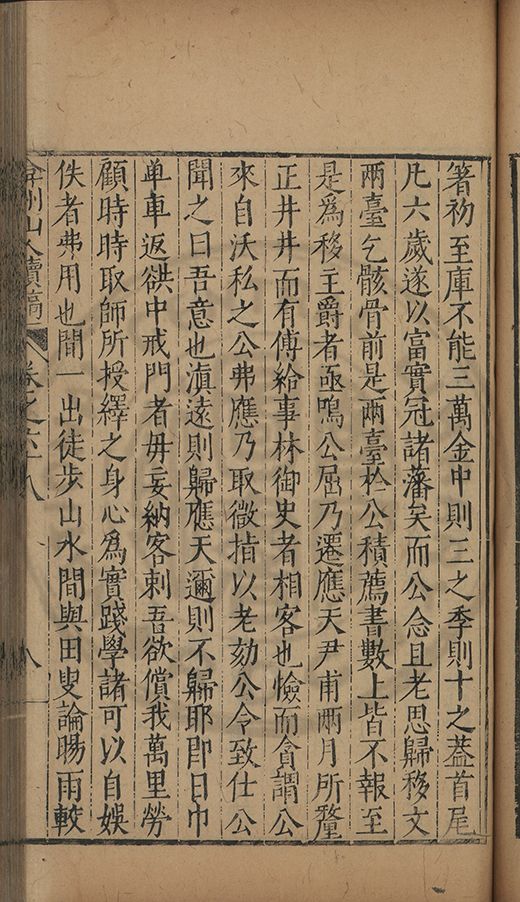 箸初至庫不能三萬金中則三之季則十之葢首尾
凡六歲遂以富實冠諸藩矣而公念且老思歸移文
兩臺乞骸骨前是兩臺扵公積薦書數上皆不報至
是爲移主爵者亟鳴公屈乃遷應天尹甫兩月所釐
正井井而有傅給事林御史者相客也憸而貪謂公
來自沃私之公弗應乃取微指以老劾公令致仕公
聞之曰吾意也滇遠則歸應天邇則不歸耶卽日巾
单車返㳟中戒門者毋妄納客刺吾欲償我萬里勞
顧時時取師所授繹之身心爲實踐學諸可以自娛
佚者弗用也間一出徒步山水間與田叟論暘雨較
弇州山人續稿
卷之六十八
八